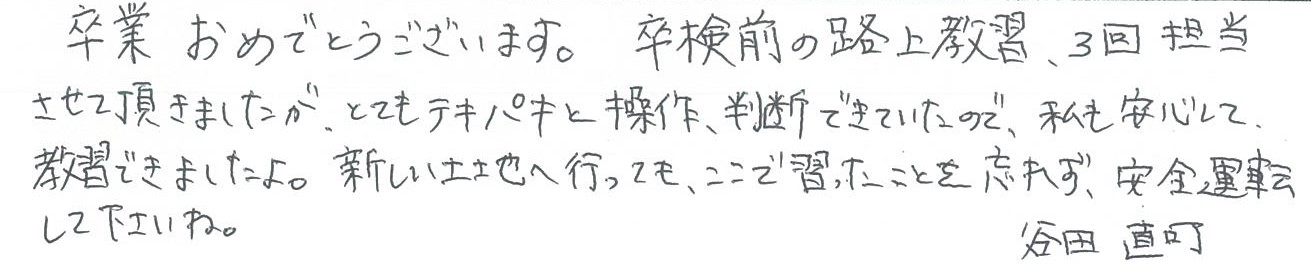 卒業 おめでとうございます。 卒検前の路上教習、3回 担当
させて頂きましたが、とてもテキパキと操作、判断できていたので、私も安心して、
教習できましたよ。新しい土地へ行っても、ここで習ったことを忘れず、安全運転
して下さいね。
谷田 直可